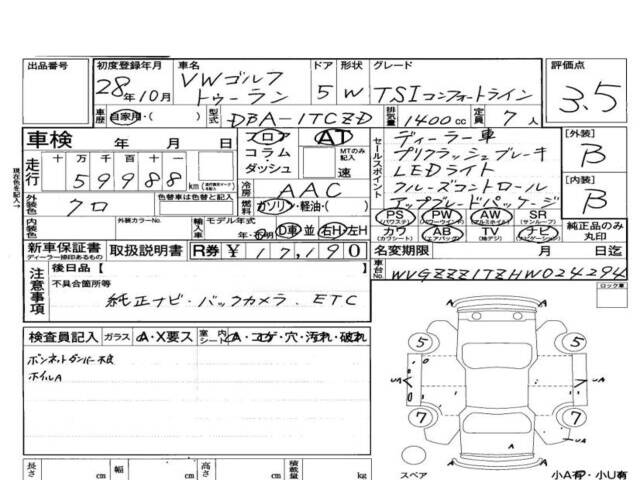 出品番号
初度登録年月 28年10月
車名 VWゴルフ トゥーラン
ドア 5
形状 W
グレード TSIコンフォートライン
評価点 3.5
車歴 自家用・( )
型式 DBA-1TCZD
排気量 1400cc
定員 7人
車検 年 月 日
フロア コラム ダッシュ
AT
MTのみ記入 速
セールスポイント
ディーラー車
プリクラッシュブレーキ
LEDライト
クルーズコントロール
アップグレードパッケージ
[外装] B
[内装] B
現在色を記入→
走行 十万千百十 59988 km
冷房 AAC
外装色 クロ
色替車は色替と記入
燃料 ガソリン・軽油・( )
PS (パワステ) PW (パワーウインド) AW (アルミホイル) SR (サンルーフ)
カワ (カワシート) AB (エアバッグ) TV (純テレビ) ナビ (ナビゲーション)
純正品のみ丸印
内装色
外装カラーNo.
輸入車 モデル年式 年・不明 D車 並 右H 左H
新車保証書 ディーラー捺印あるもの
取扱説明書
R券 ¥17,190
名変期限 月 日迄
車台No. WVGZZZ1TZHW024294
注意事項
後日品【 】
不具合箇所等
純正ナビ・バックカメラ.ETC
ロック車
検査員記入 ガラス A・X要ス 室内シート A・コゲ・穴・汚れ・破れ
ボンネットダンパー不良
ホイルA
A
A
5
5
UA
UA
7
7
UA
A
スペア
小A有・小U有
長さ cm 幅 cm 高さ cm 積載量 kg